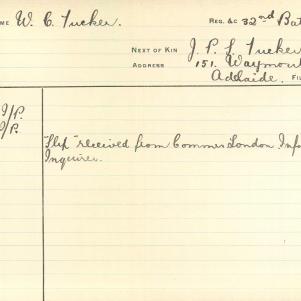 ME W. C. Tucker. REG. &c 32nd Bat
NEXT OF KIN J. P. L. Tucker
ADDRESS 151. Waymout
Adelaide. FI
/P.
/P.
"Slip" received from Comman London Info
Inquirer.